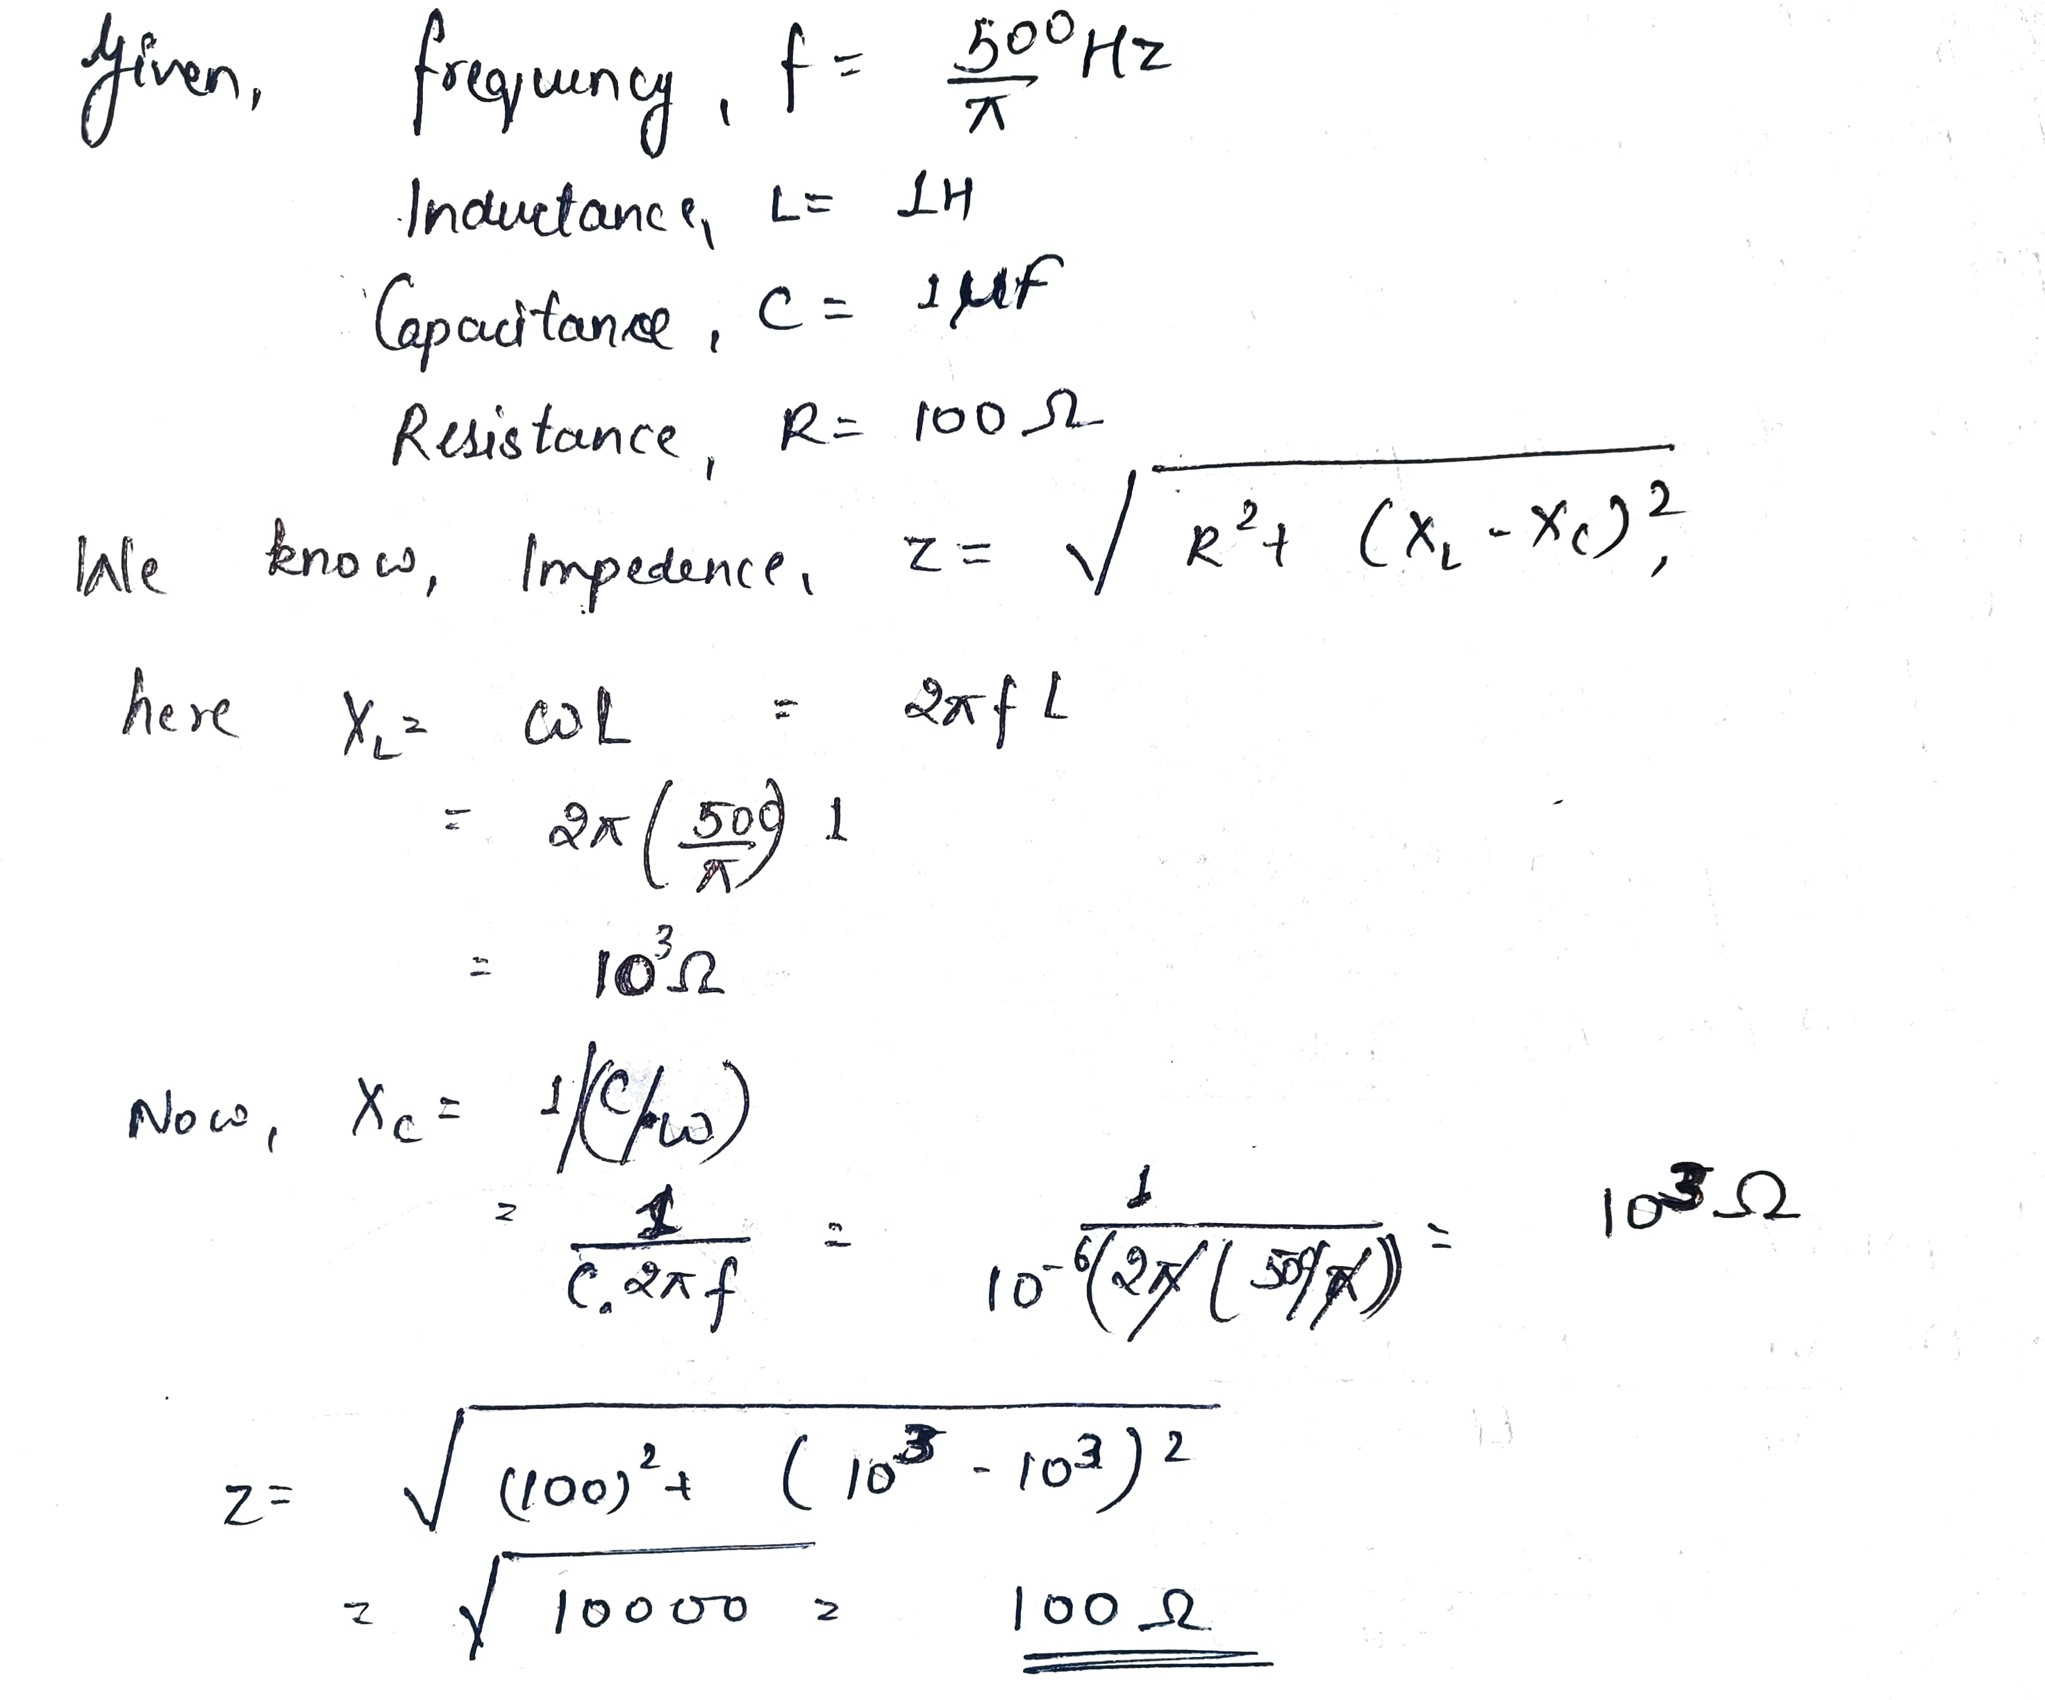 Given, frequency, f = 500/π Hz
Inductance, L = 1H
Capacitance, C = 1μf
Resistance, R = 100 Ω
We know, Impedence, Z = √(R² + (X_L - X_C)²,
here X_L = ωL = 2πfL
= 2π(500/π) 1
= 10³Ω
Now, X_C = 1/(C/ω)
= 1/(C.2πf) = 1/(10⁻⁶(2π(500/π))) = 10³Ω
Z = √((100)² + (10³ - 10³)²)
= √10000 = 100 Ω